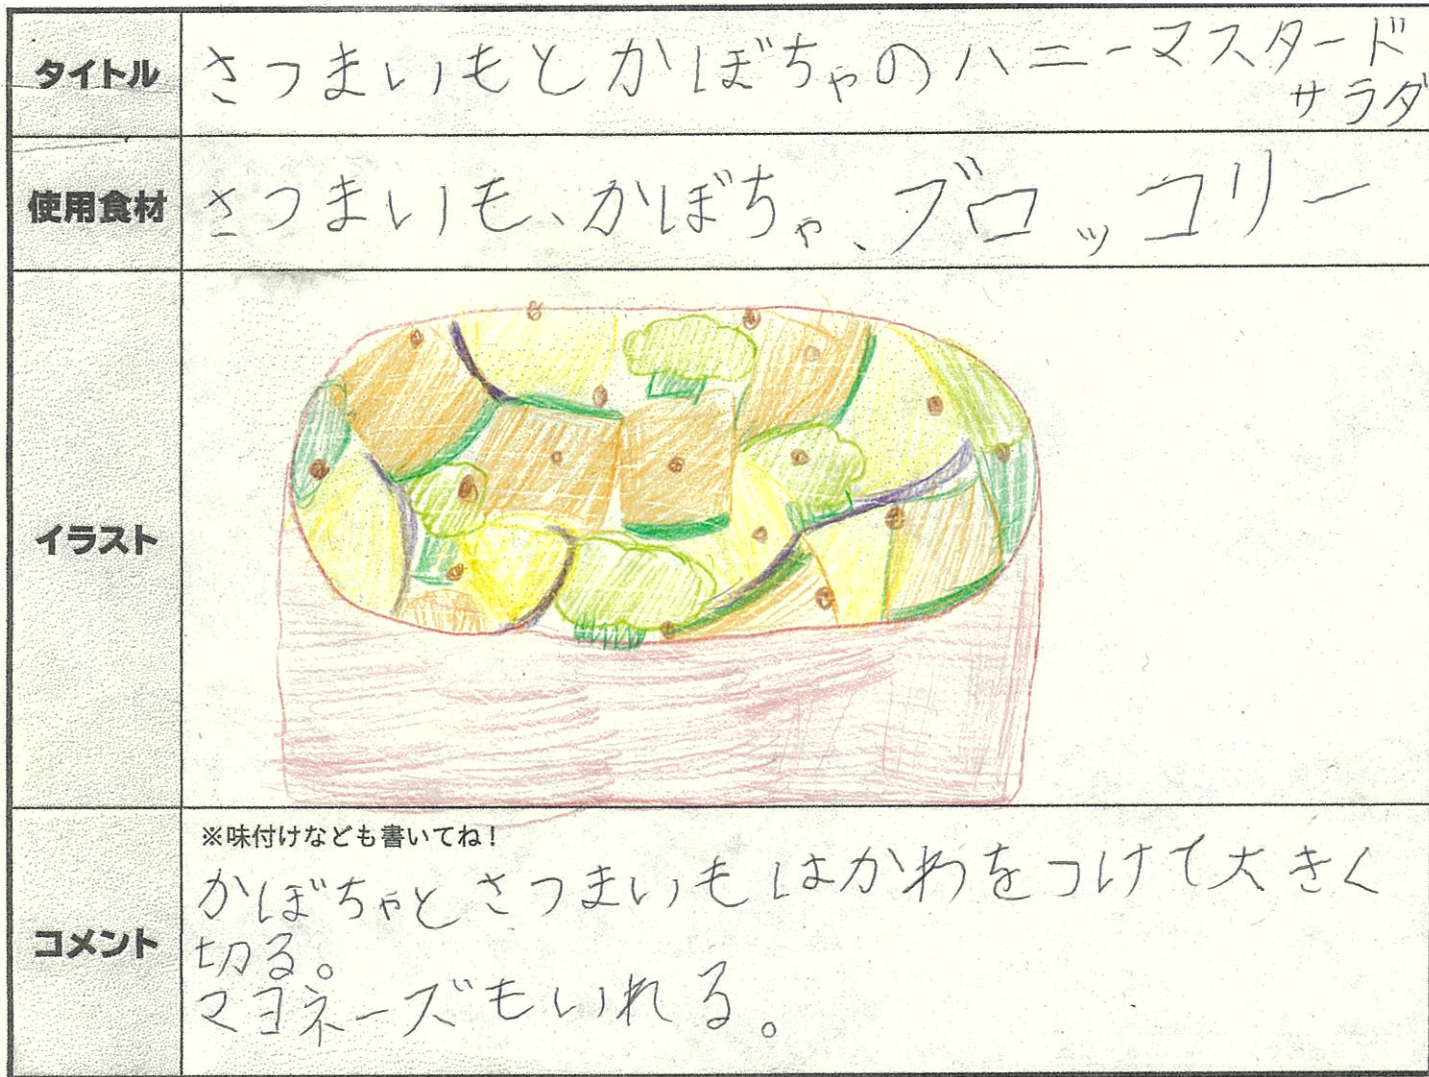 タイトル
さつまいもとかぼちゃのハニーマスタード
サラダ
使用食材
さつまいも、かぼちゃ、ブロッコリー
イラスト
コメント
※味付けなども書いてね！
かぼちゃとさつまいもはかわをつけて大きく
切る。
マヨネーズもいれる。